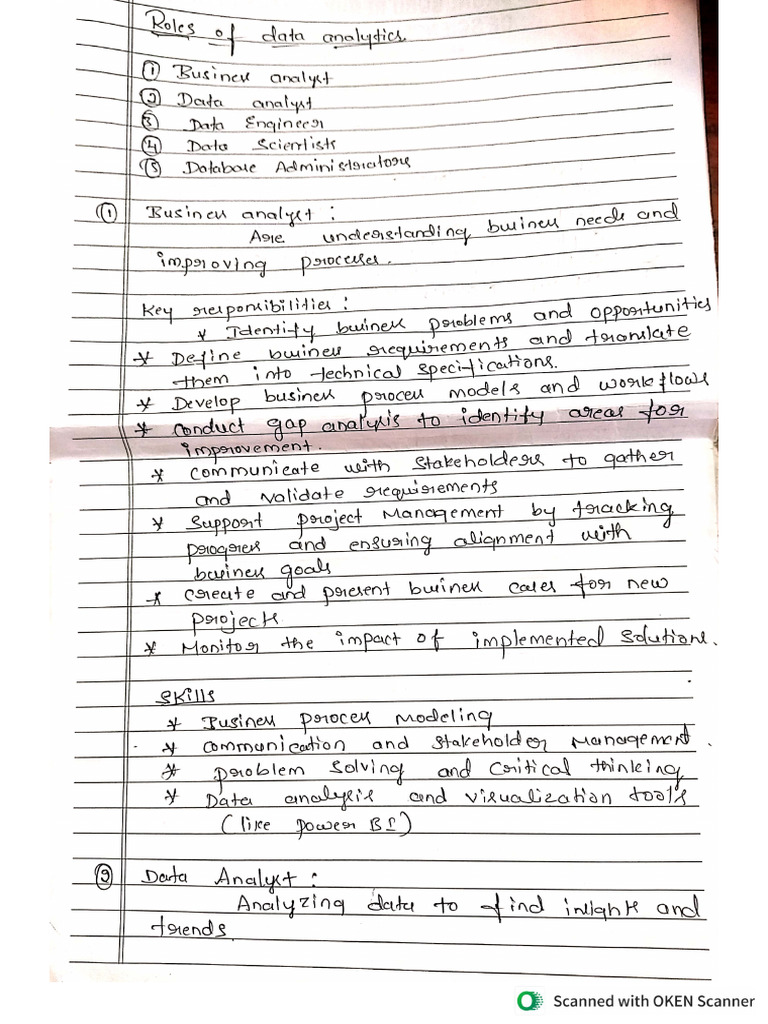 Roles of data analytics
① Business analyst
② Data analyst
③ Data Engineer
④ Data Scientists
⑤ Database Administrators
① Business analyst :
Are understanding business needs and
improving processes.
Key responsibilities :
* Identify business problems and opportunities
* Define business requirements and translate
them into technical specifications.
* Develop business process models and workflows
* Conduct gap analysis to identify areas for
improvement.
* Communicate with stakeholders to gather
and validate requirements
* Support project Management by tracking
progress and ensuring alignment with
business goals
* Create and present business cases for new
projects.
* Monitor the impact of implemented solutions.
Skills
* Business process modeling
* Communication and stakeholder management.
* problem solving and critical thinking
* Data analysis and visualization tools
(like power BI)
② Data Analyst :
Analyzing data to find insights and
trends.
Scanned with OKEN Scanner